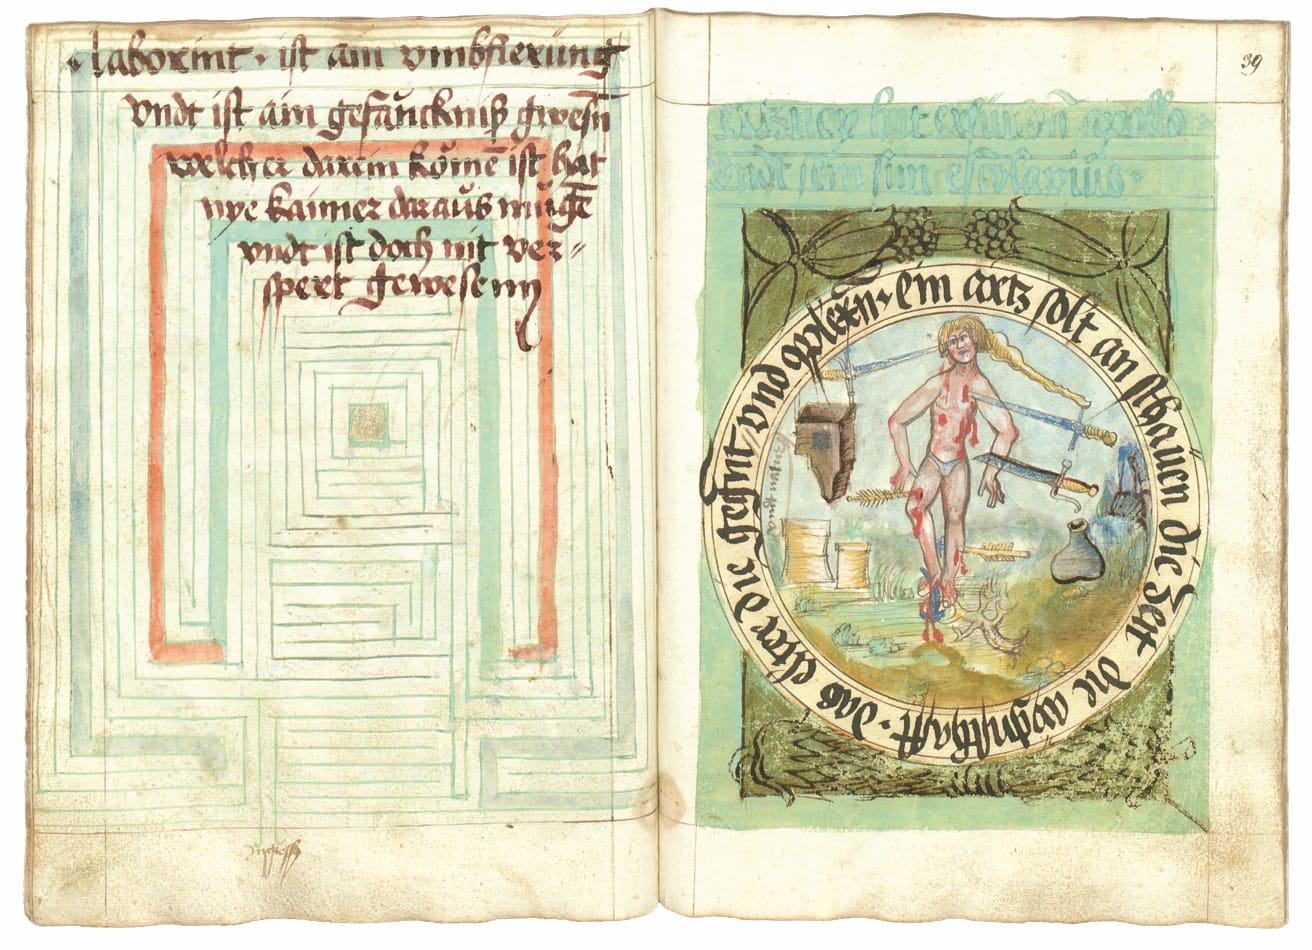 · laborint · ist ain vmbfierung
vndt ist ain gefăncknuß gwesñ
welcher darein kömē ist hat
nye kainer daraŭs mŭgē
vndt ist doch nit ver⸗
spert gewesenn
39
ertzney hat erfundñ apollo ·
vndt sein sun escolapius ·
ein artz solt an schaŭen die Zeit die aygnschafft · das elter die gegñt vnd
vndt natur